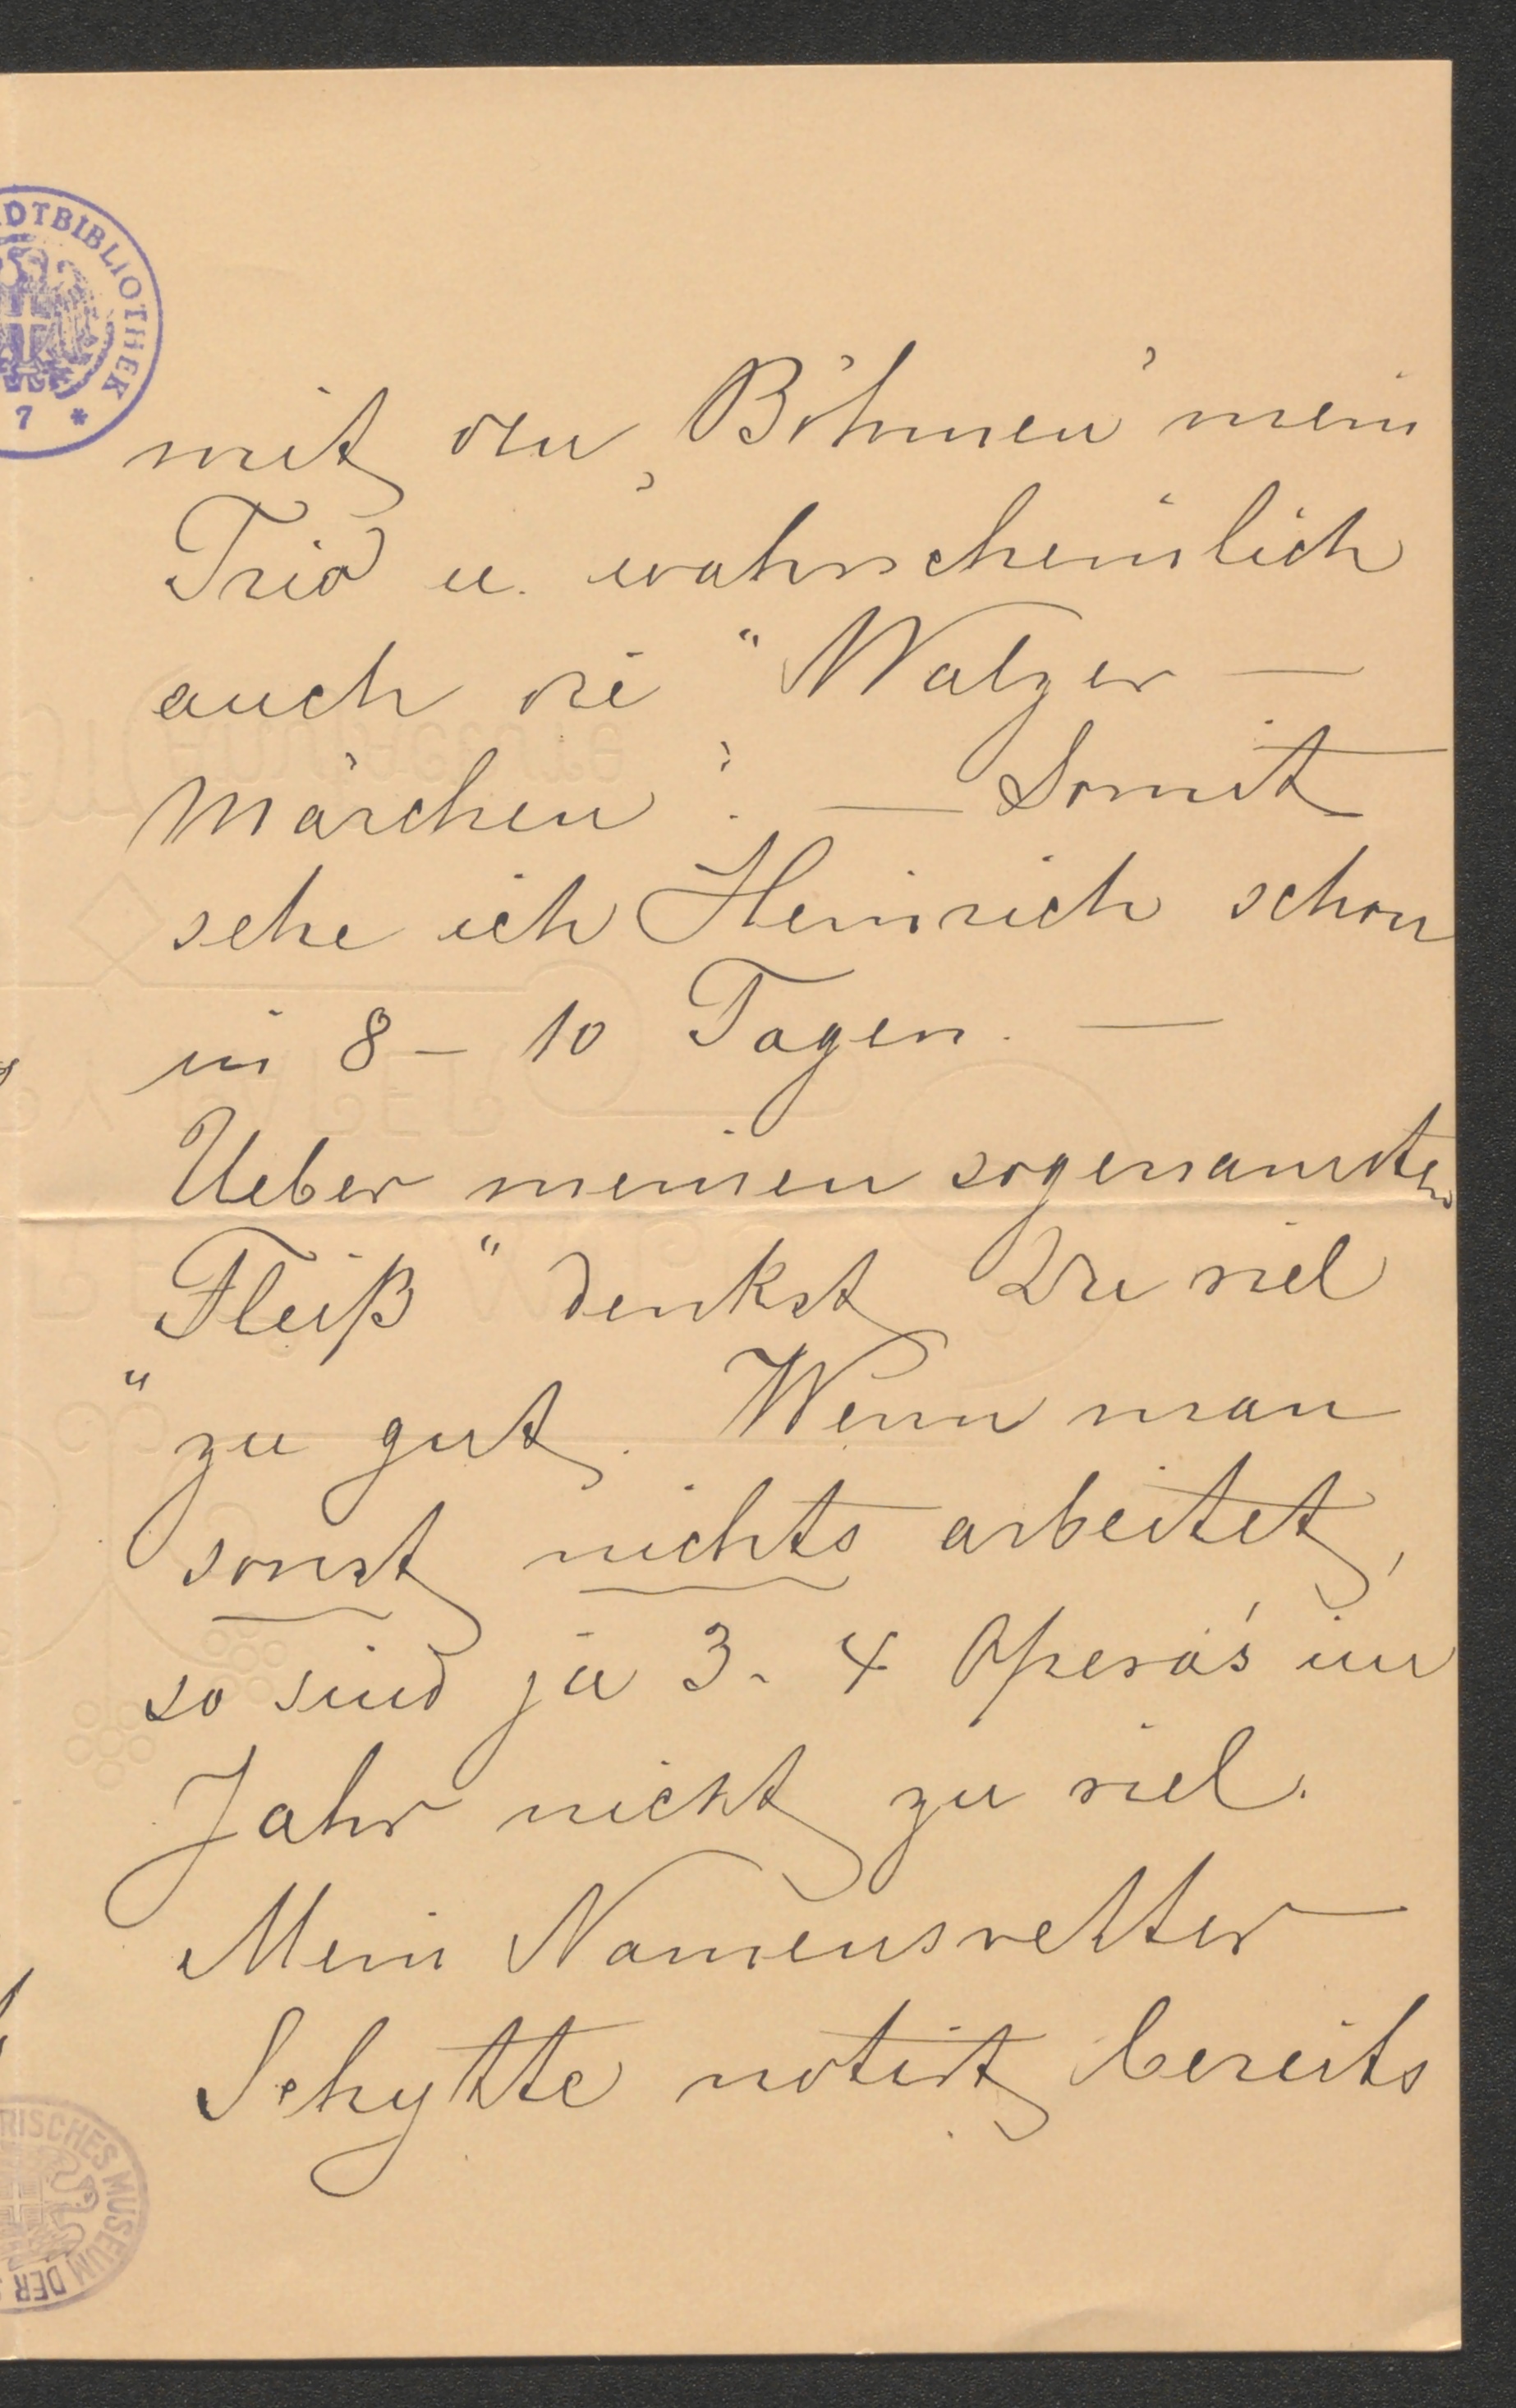 DTBIBLIOTHEK
7 *
mit den „Böhmen" mein
Trio u. wahrscheinlich
auch die "Walzer —
Märchen". — Somit
sehe ich Heinrich schon
in 8 – 10 Tagen. —
Ueber meinen sogenannten
Fleiß" denkst Du viel
"zu gut. Wenn man
sonst nichts arbeitet,
so sind ja 3 - 4 Opera's im
Jahr nicht zu viel.
Mein Namensvetter
Schytte notirt bereits
RISCHES MUSEUM DER